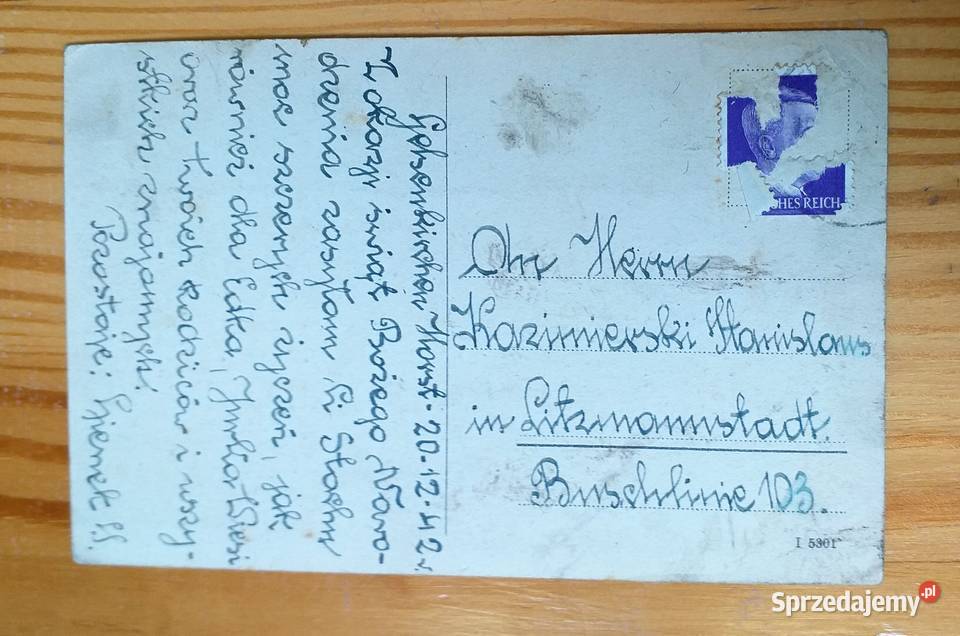 Gelsenkirchen Horst - 20-12-42r
Z okazji świąt Bożego Naro-
dzenia zasyłam Ci Stachu
moc szczerych życzeń, jak
również dla Edka, Julka Wiesi
oraz twoich Rodziców i wszy-
stkich znajomych!
Pozostaję: Gienek S.
HES REICH
An Herrn
Kazimierski Stanislaus
in Litzmannstadt.
Buschlinie 103.
I 5301
Sprzedajemy.pl